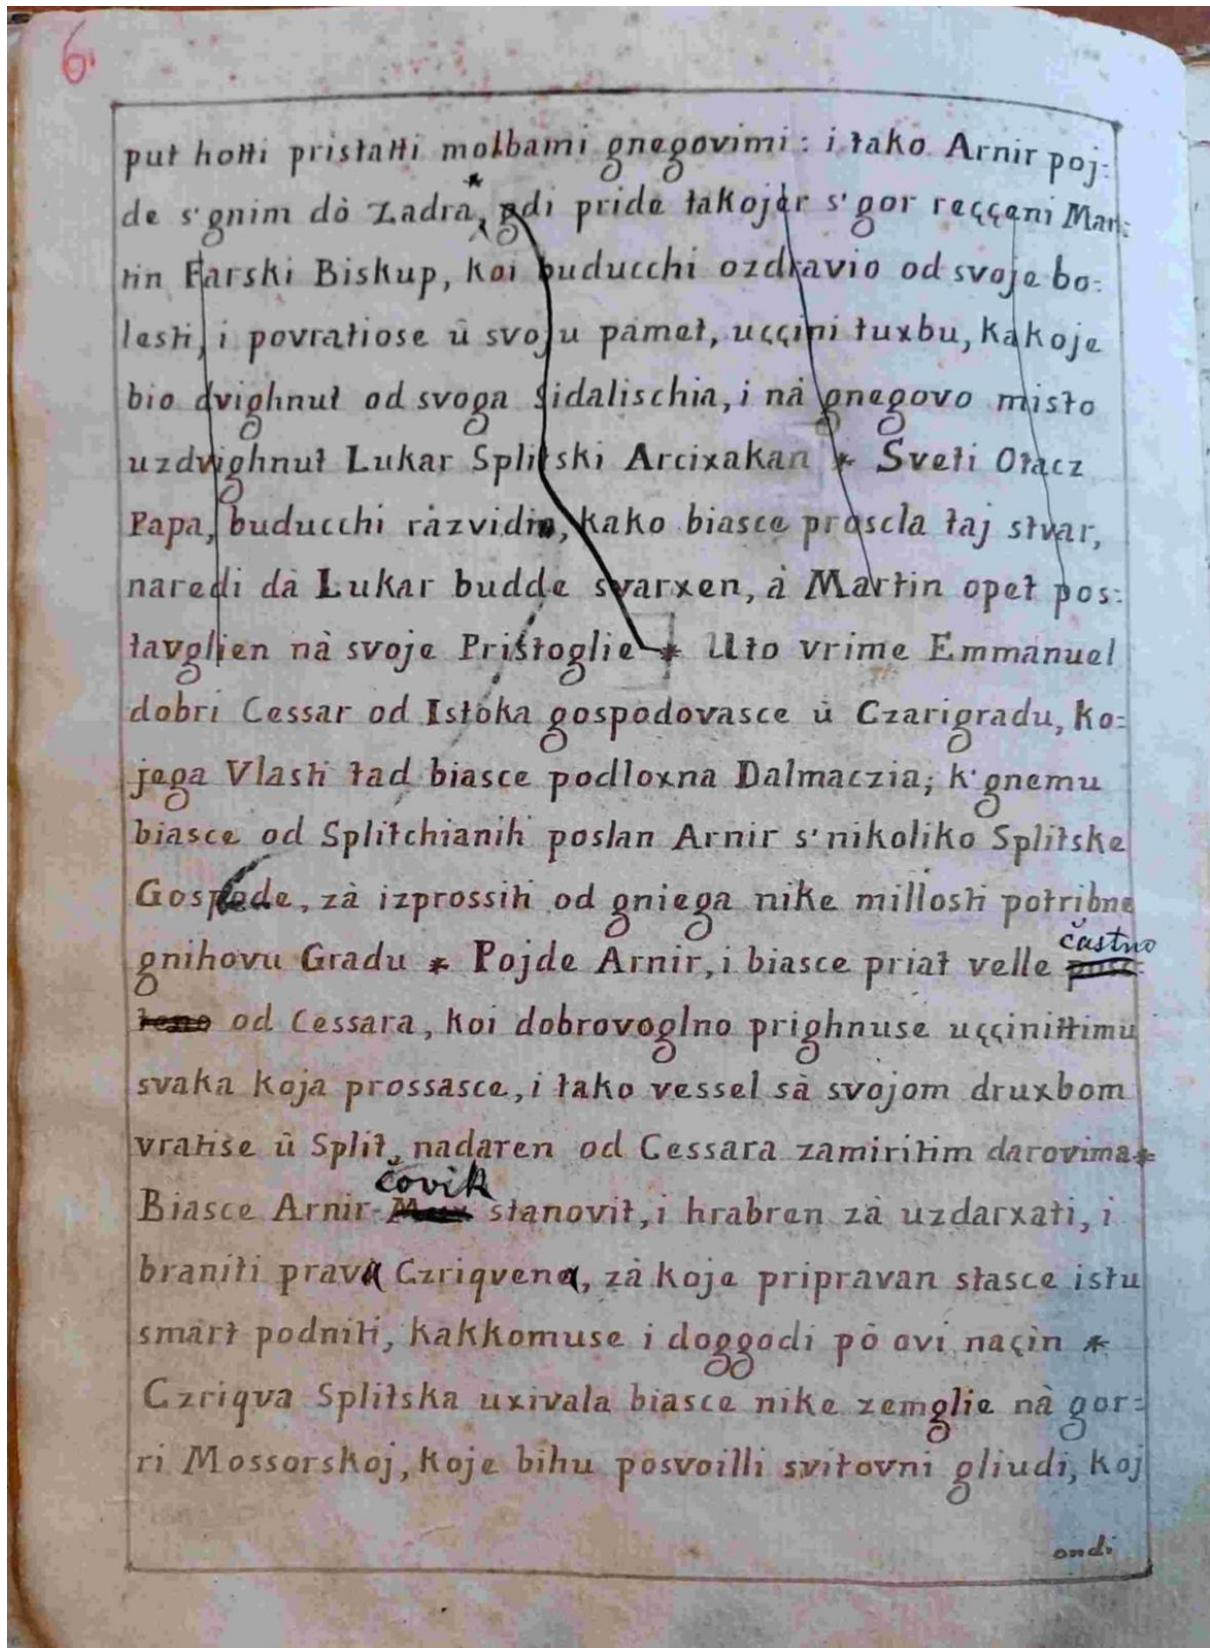 6.
put hotti pristatti molbami gnegovimi: i tako Arnir poj:
de s'gnim dò Zadra, gdi pride takojer s'gor reççeni Mar:
tin Farski Biskup, koi buducchi ozdravio od svoje bo:
lesti, i povratiose ù svoju pamet, uççini tuxbu, kakoje
bio dvighnut od svoga Sidalischia, i nà gnegovo misto
uzdvighnut Lukar Splitski Arcixakan * Sveti Otacz
Papa, buducchi ràzvidio, kako biasce proscla taj stvar,
naredi dà Lukar budde svarxen, à Martin opet pos:
tavglien nà svoje Pristoglie * Uto vrime Emmanuel
dobri Cessar od Istoka gospodovasce ù Czarigradu, ko:
jega Vlasti tad biasce podloxna Dalmaczia; k'gnemu
biasce od Splitchianih poslan Arnir s'nikoliko Splitske
Gospode, zà izprossiti od gniega nike millosti potribne
gnihovu Gradu * Pojde Arnir, i biasce priat velle častno
od Cessara, koi dobrovoglno prighnuse uççinittimu
svaka koja prossasce, i tako vessel sà svojom druxbom
vratise ù Split, nadaren od Cessara zamiritim darovima *
Biasce Arnir čovik stanovit, i hrabren zà uzdarxati, i
braniti prava Czriqvena, zà koje pripravan stasce istu
smart podniti, kakkomuse i doggodi pò ovi naçin *
Czriqva Splitska uxivala biasce nike zemglie nà gor:
ri Mossorskoj, koje bihu posvoilli svitovni gliudi, koj
ondi